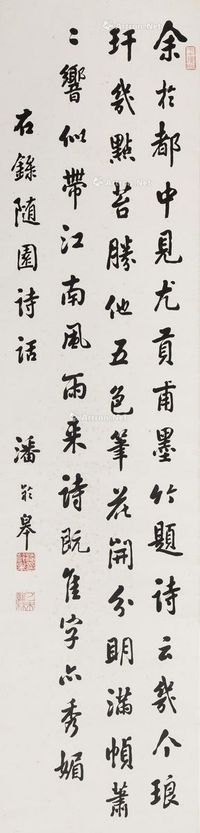 余於都中見尤貢甫墨竹題詩云幾个琅
玕幾點苔勝他五色筆花開分明滿幀蕭
〻響似帶江南風雨來詩既佳字亦秀媚
右錄随園詩話 潘齡皋